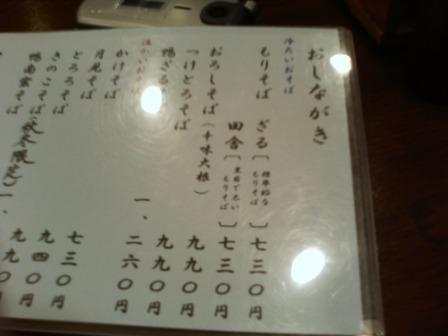 おしながき
冷たいおそば
もりそば ざる〔標準的なもりそば〕七三〇円
田舎〔黒目で太いもりそば〕七三〇円
おろしそば(辛味大根) 九九〇円
つけとろそば 九九〇円
鴨ざる 一、二六〇円
温かいおそば
かけそば
月見そば
とろろそば
きのこそば
鴨南蛮そば(秋冬限定)一、
七三〇
九四〇円
九九〇円